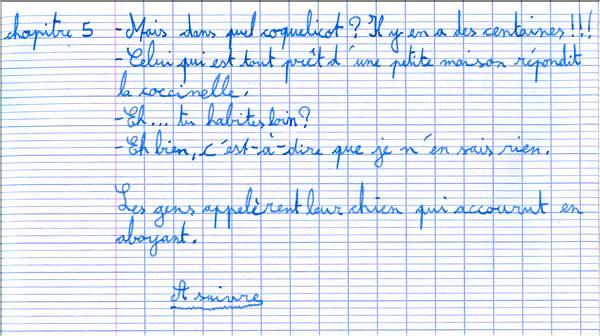 chapitre 5 - Mais dans quel coquelicot ? Il y en a des centaines !!!
- Celui qui est tout prêt d'une petite maison répondit
la coccinelle.
- Eh... tu habites loin ?
- Eh bien, c'est-à-dire que je n'en sais rien.
Les gens appelèrent leur chien qui accourut en
aboyant.
A suivre